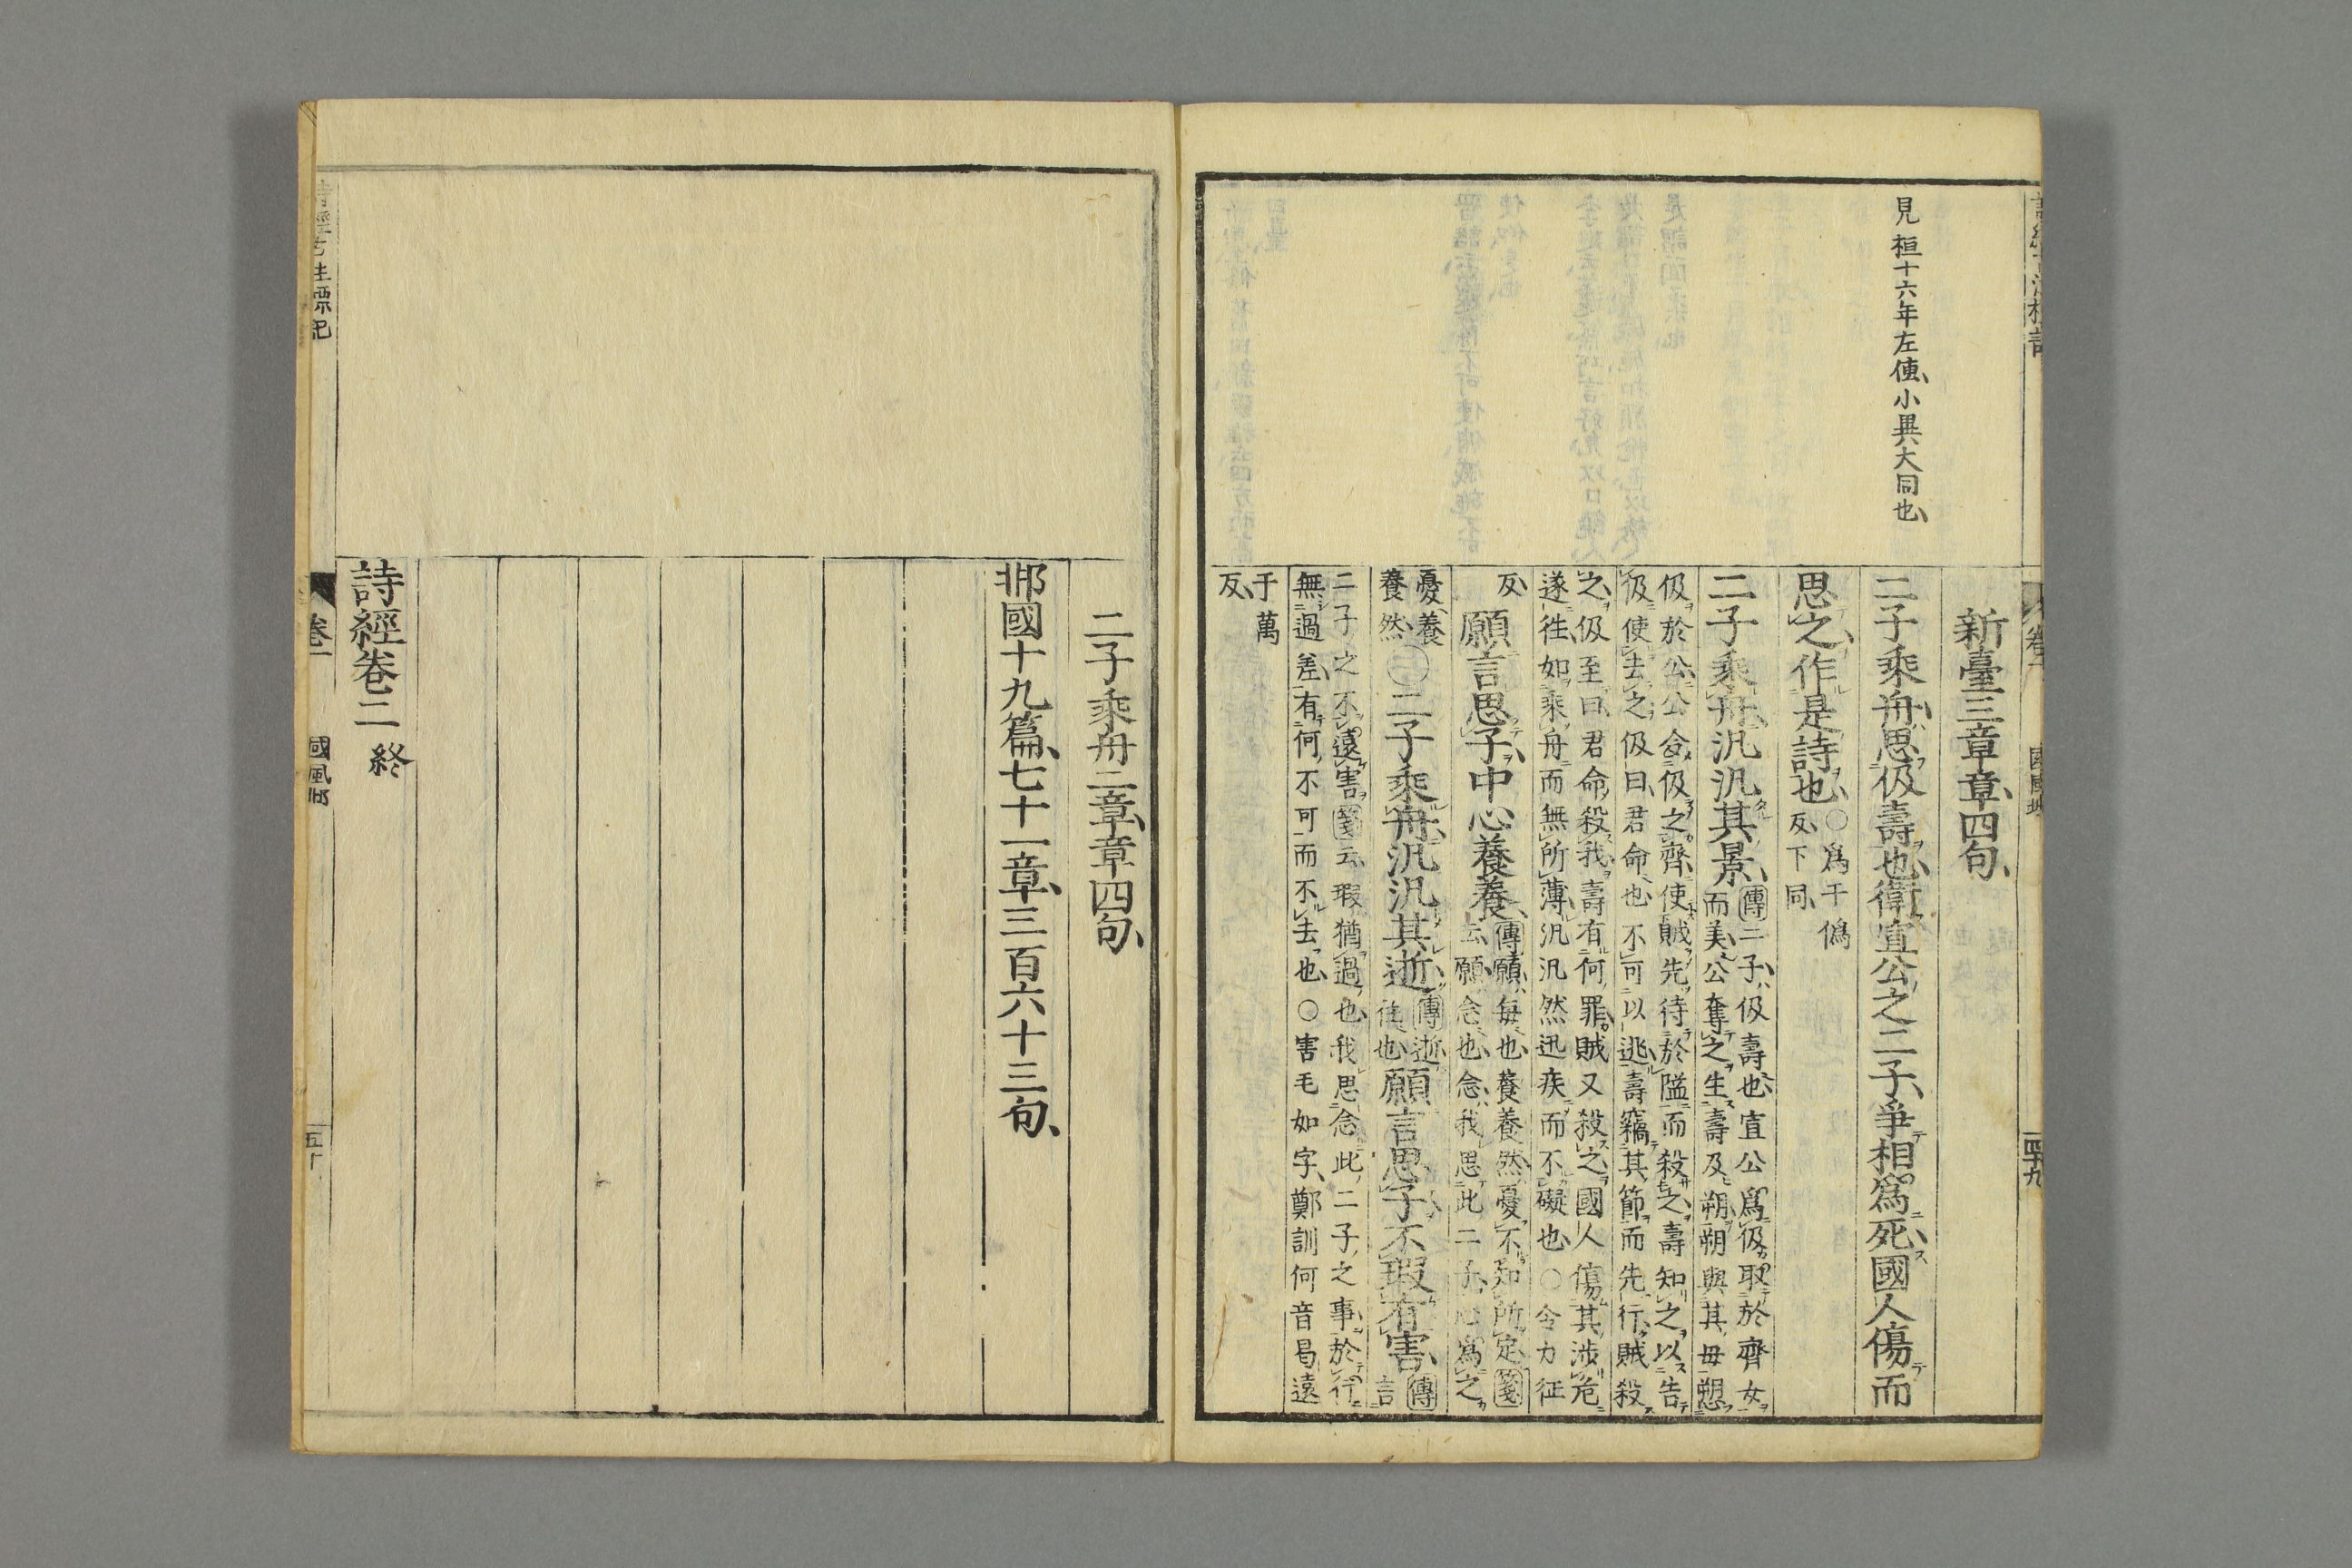 見桓十六年左傳、小異大同也、
新臺三章章四句、
二子乘舟、思伋壽也、衛宣公之二子、爭相爲死、國人傷而
思之、作是詩也、○爲于僞
反、下同、
二子乘舟、汎汎其景、傳二子、伋壽也、宣公爲伋取於齊女
而美、公奪之、生壽及朔、朔與其母愬
伋於公、公令伋之齊、使賊先待於隘而殺之、壽知之、以告
伋、使去之、伋曰、君命也、不可以逃、壽竊其節而先行、賊殺
之、伋至曰、君命殺我、壽有何罪、賊又殺之、國人傷其涉危
遂往、如乘舟而無所薄、汎汎然迅疾而不礙也、○令力征
反、
願言思子、中心養養、傳願、每也、養養然、憂不知所定、箋
云、願、念也、念我思此二子、心爲之
憂養
養然、
○二子乘舟、汎汎其逝、傳逝、
往也、
願言思子、不瑕有害、傳
言
二子之不遠害、箋云、瑕猶過也、我思念此二子之事、於行
無過差、有何不可而不去也、○害毛如字、鄭訓何音曷遠
于萬
反、
卷二
四十九
二子乘舟二章、章四句、
邶國十九篇、七十一章、三百六十三句、
詩經卷二 終
國風邶
五十